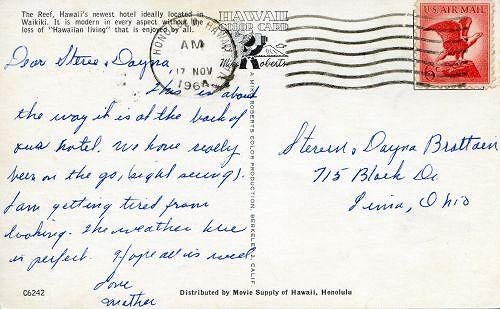 The Reef, Hawaii's newest hotel ideally located in
Waikiki. It is modern in every aspect without the
loss of "Hawaiian living" that is enjoyed by all.
HAWAII
COLOR CARD
Mike Roberts
HONOLULU HAWAII
AM
17 NOV
1964
U.S. AIR MAIL
6¢
Dear Steve & Dayna
This is about
the way it is at the back of
our hotel. We have really
been on the go, (sight seeing).
I am getting tired from
looking. The weather here
is perfect. Hope all is well
Love
Mother
Steven & Dayna Brattain
715 Black De
Lima, Ohio
A MIKE ROBERTS COLOR PRODUCTION, BERKELEY 2, CALIF.
C6242
Distributed by Movie Supply of Hawaii, Honolulu